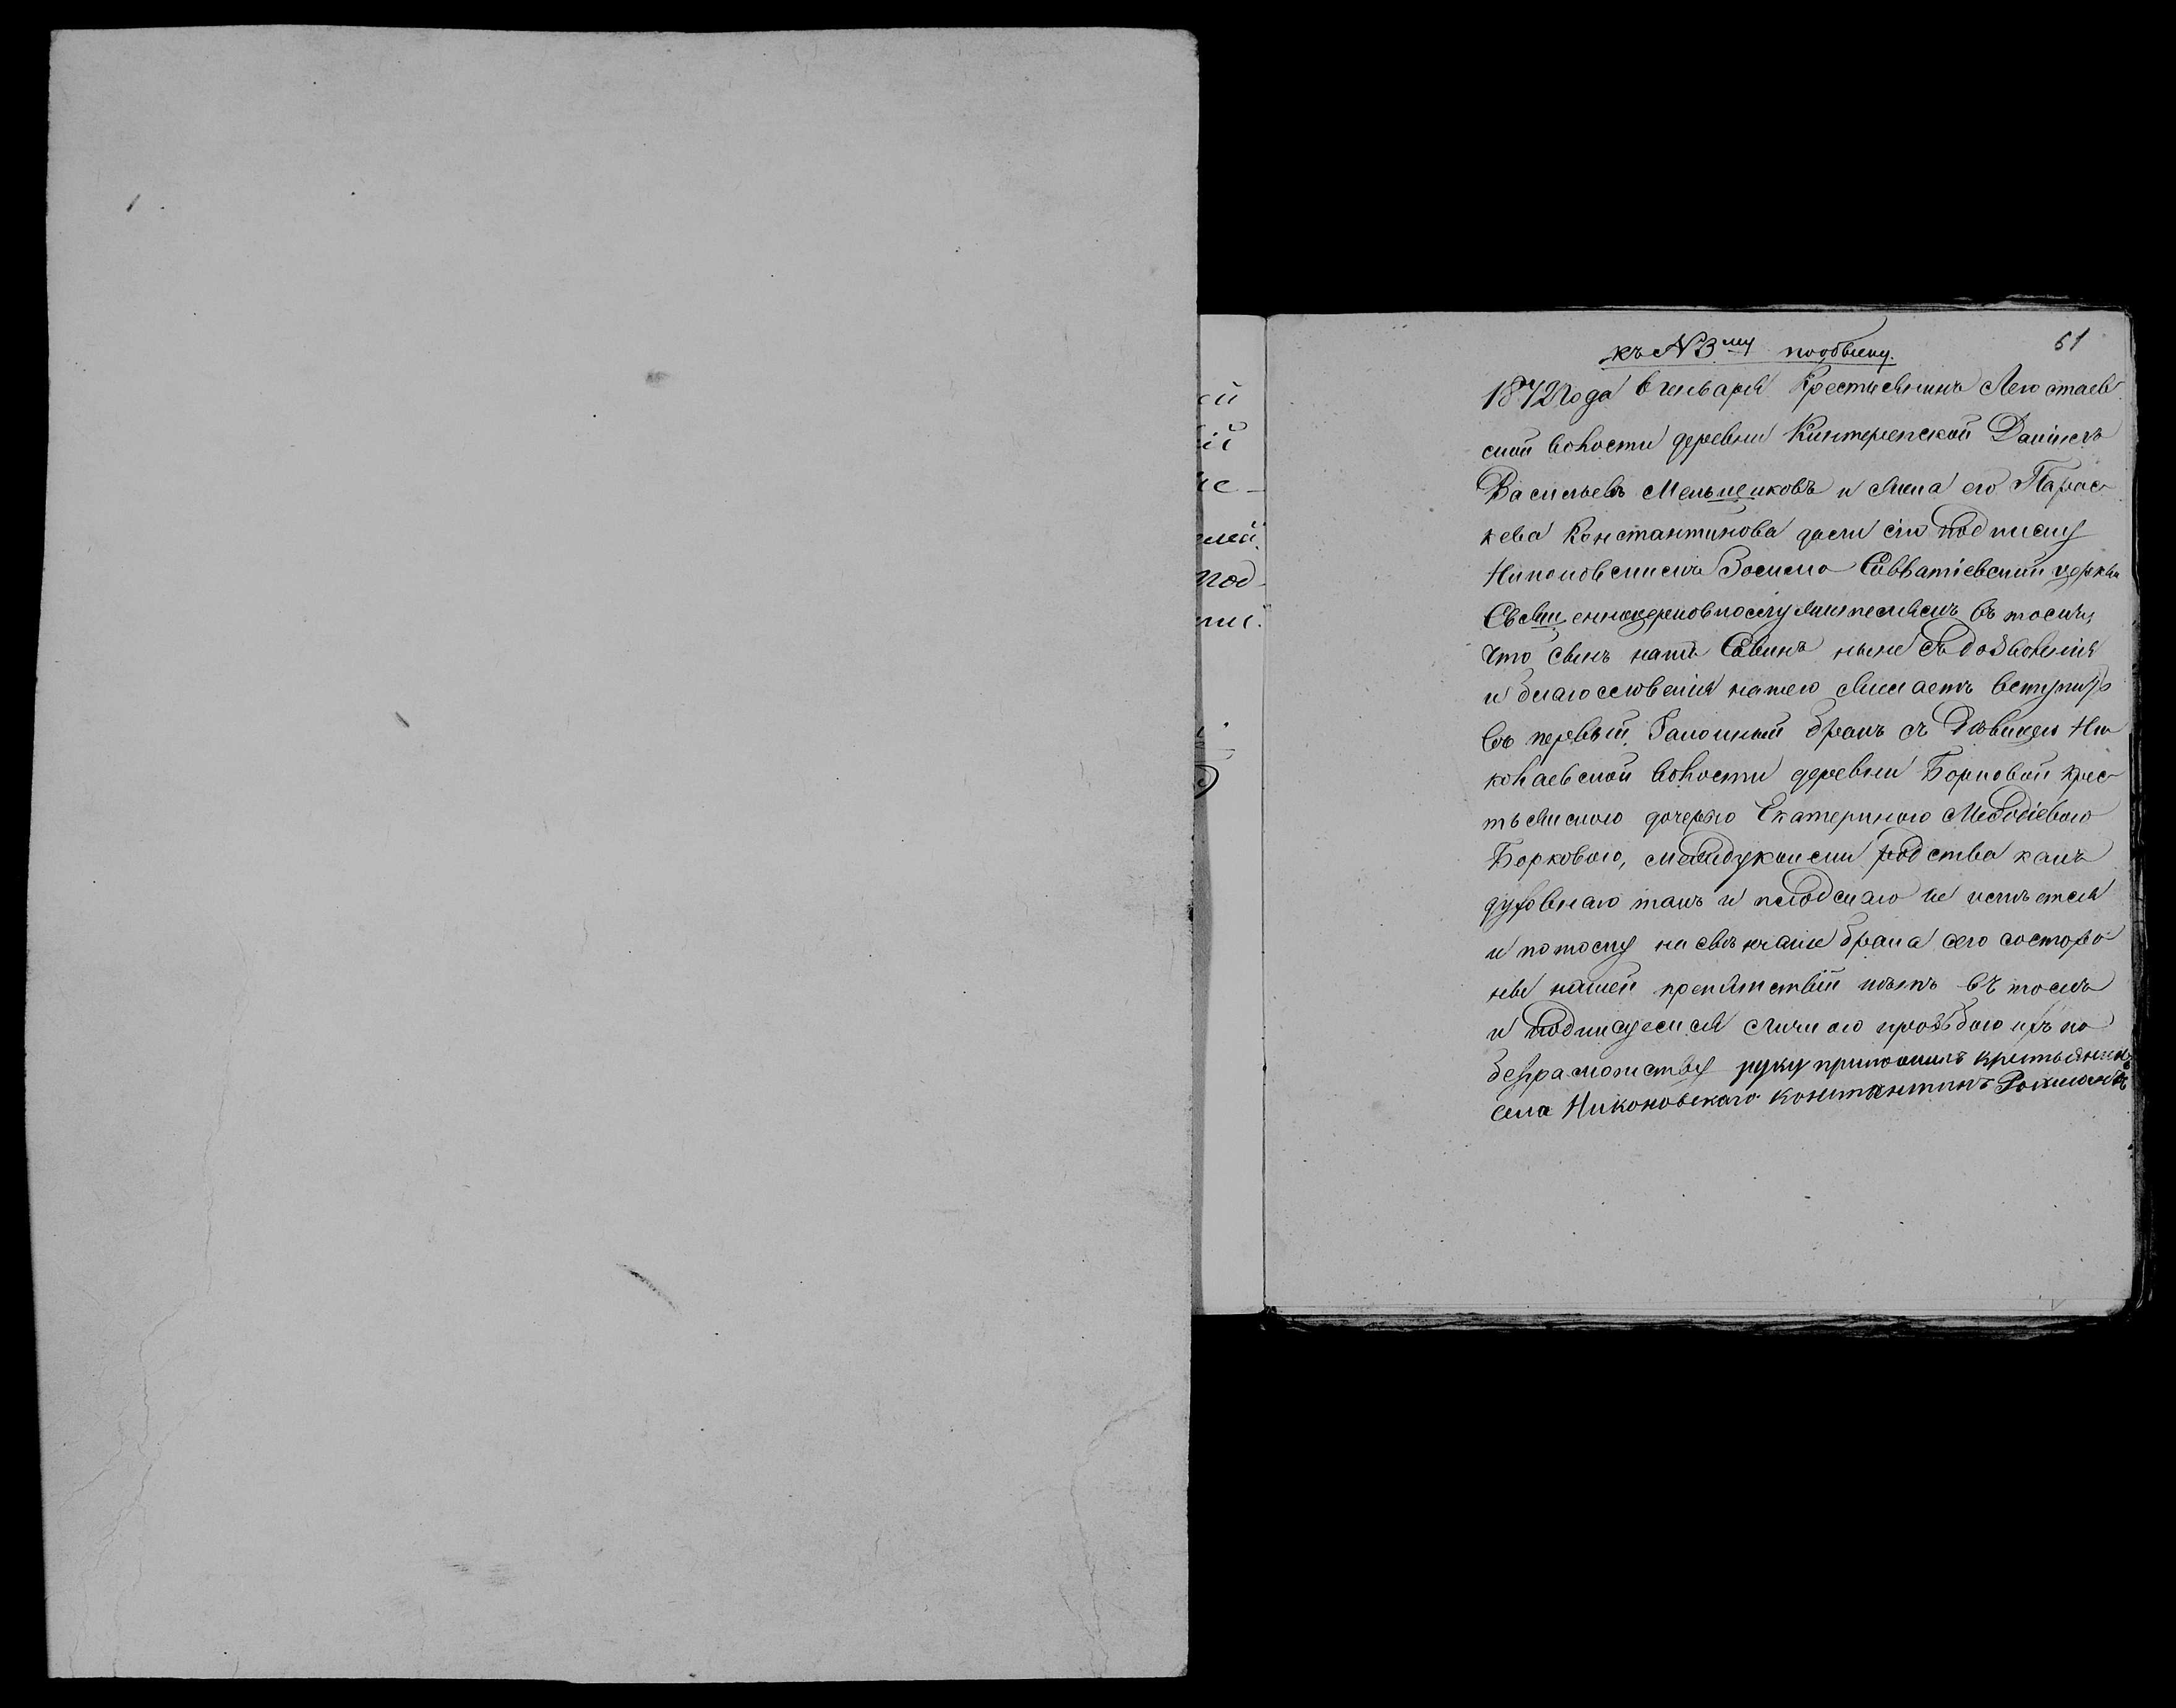 къ N 3му пообыску.
61
1872 года Генваря Крестьянинъ Легостаев
ской волости деревни Кинтерепской Данiилъ
Васильевъ Мельпениковъ и Жена его Парас
кева Константинова дали сiю подписку
Никоновскимъ Зосимо Савватiевский церкви
въ томъ,
что сынъ нашъ Савинъ ныне съ дозволенiя
и благословенiя нашего Желаетъ вступить
въ первый Законный бракъ съ Девицею Ни
колаевской волости деревни Борковой крес
тьянскою дочерью Екатериною Мефодiевою
Борковою, между коими родства какъ
духовнаго такъ и плодскаго не имеется
и потому на свенчание брака сего состоро
ны нашей препятствiй нетъ въ томъ
и подписуемся личною прозьбою ихъ по
безграмотству руку приложилъ крестьянинъ
села Никоновскаго Константинъ
ой
iй
iс-
мей
под-